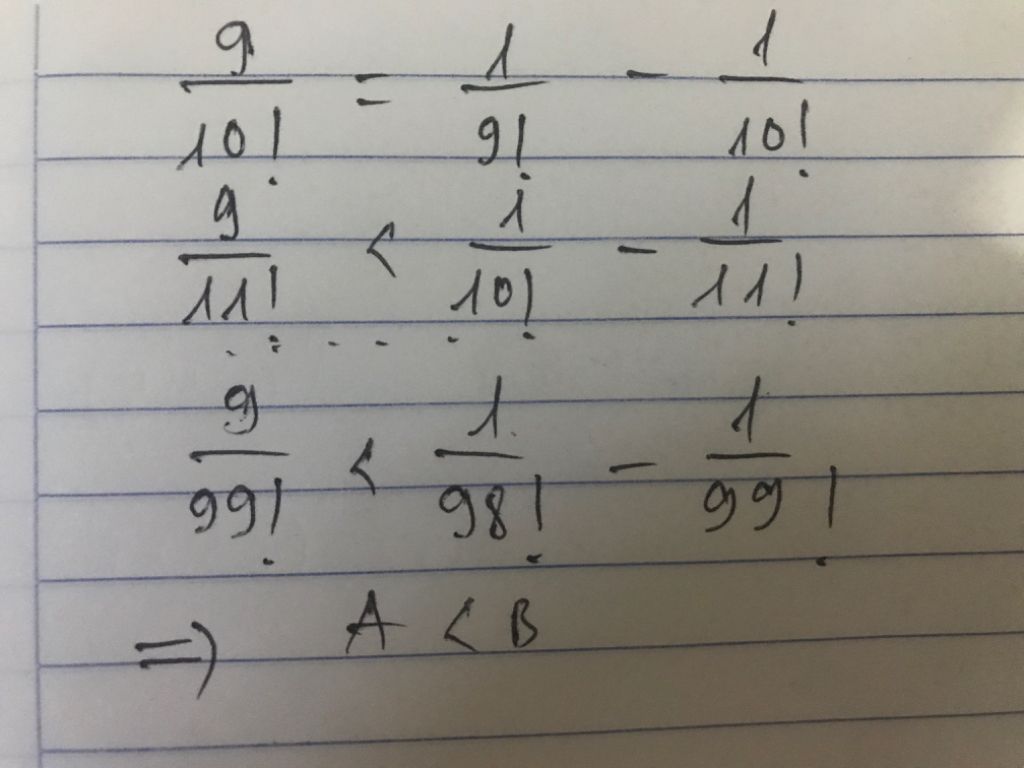 9/10! = 1/9! - 1/10!
9/11! < 1/10! - 1/11!
. : - - . .
9/99! < 1/98! - 1/99!
=> A < B